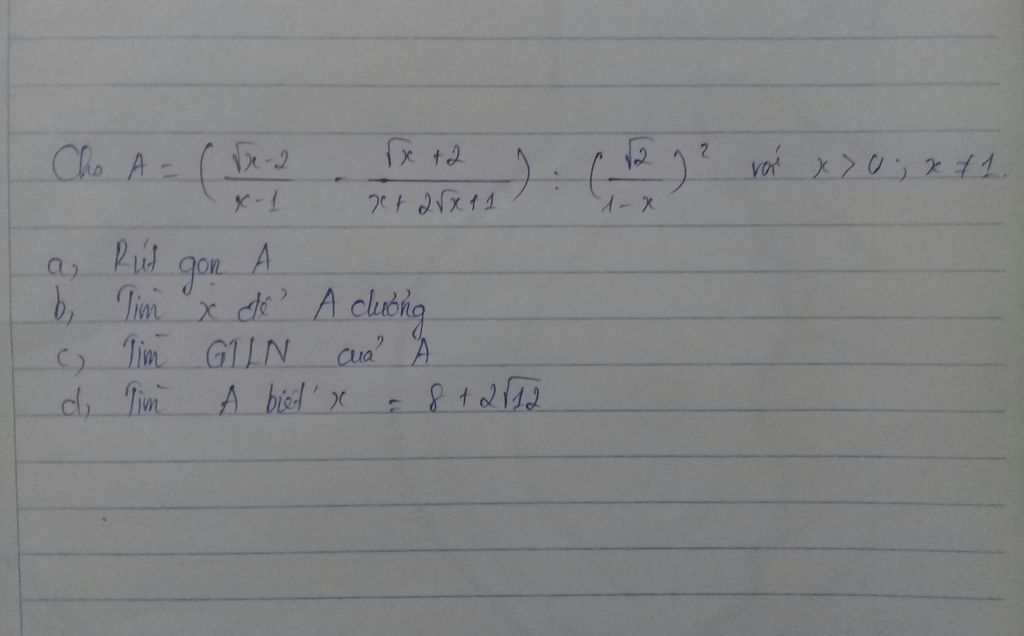 Cho A = ( (√x - 2)/(x - 1) - (√x + 2)/(x + 2√x + 1) ) : ( √2/(1 - x) )² với x > 0 ; x ≠ 1.
a, Rút gọn A
b, Tìm x để A dương
c, Tìm GTLN của A
d, Tìm A biết x = 8 + 2√12